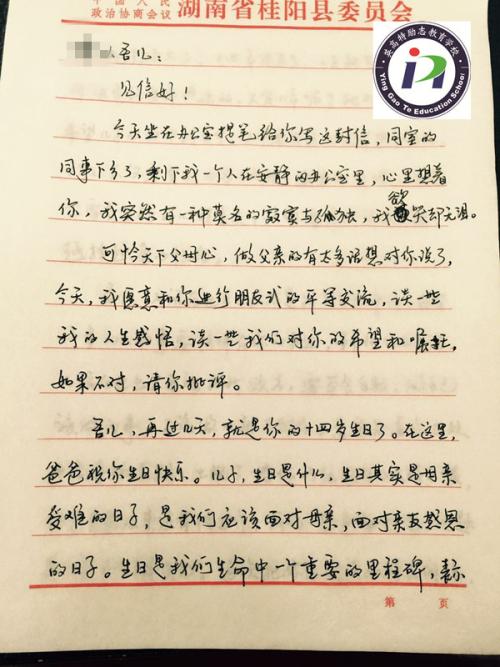 中国人民
政治协商会议 湖南省桂阳县委员会
英高特励志教育学校
Ying Gao Te Education School
吾儿：
见信好！
今天坐在办公室提笔给你写这封信，同室的
同事下乡了，剩下我一个人在安静的办公室里，心里想着
你，我突然有一种莫名的寂寞与孤独，我欲哭却无泪。
可怜天下父母心，做父亲的有太多话想对你说了，
今天，我愿意和你进行朋友式的平等交流，谈一些
我的人生感悟，谈一些我们对你的希望和嘱托，
如果不对，请你批评。
吾儿，再过几天，就是你的十四岁生日了。在这里，
爸爸祝你生日快乐。儿子，生日是什么，生日其实是母亲
受难的日子，是我们应该面对母亲，面对亲友感恩
的日子。生日是我们生命中一个重要的里程碑，表示
第 页